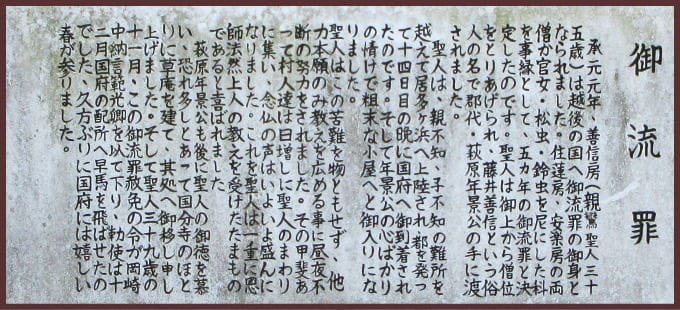 御流罪
承元元年、善信房（親鸞聖人三十
五歳）は越後の国へ御流罪の御身と
なられました。住蓮房、安楽房の両
僧が官女・松虫・鈴虫を尼にした科
を事縁として、五カ年の御流罪と決
定したのです。聖人は御上から僧位
をとりあげられ、藤井善信という俗
人の名で郡代・萩原年景公の手に渡
されました。
聖人は、親不知、子不知の難所を
越えて居多ヶ浜へ上陸され、都を発っ
て十四日目の晩に国府へ御到着され
たのです。そして年景公の心ばかり
の情けで粗末な小屋へと御入りにな
りました。
聖人はこの苦難を物ともせず、他
力本願のみ教えを広める事に昼夜不
断の努力をされました。その甲斐あ
って村人達は日増しに聖人のまわり
に集い、念仏の声はいよいよ盛んに
なりました。これを聖人は一重に恩
師法然上人の教えを受けたたまもの
であると喜ばれました。
萩原年景公も後に聖人の御徳を慕
い、恐れ多しとあって国分寺のほと
りに草庵を建て、其処へ御移し申し
上げました。そして聖人三十九歳の
十一月、この御流罪赦免の令が岡崎
中納言範光卿を以て下り、勅使は十
二月国府の配所へ早馬を飛ばせたの
でした。久方ぶりに国府には嬉しい
春が参りました。